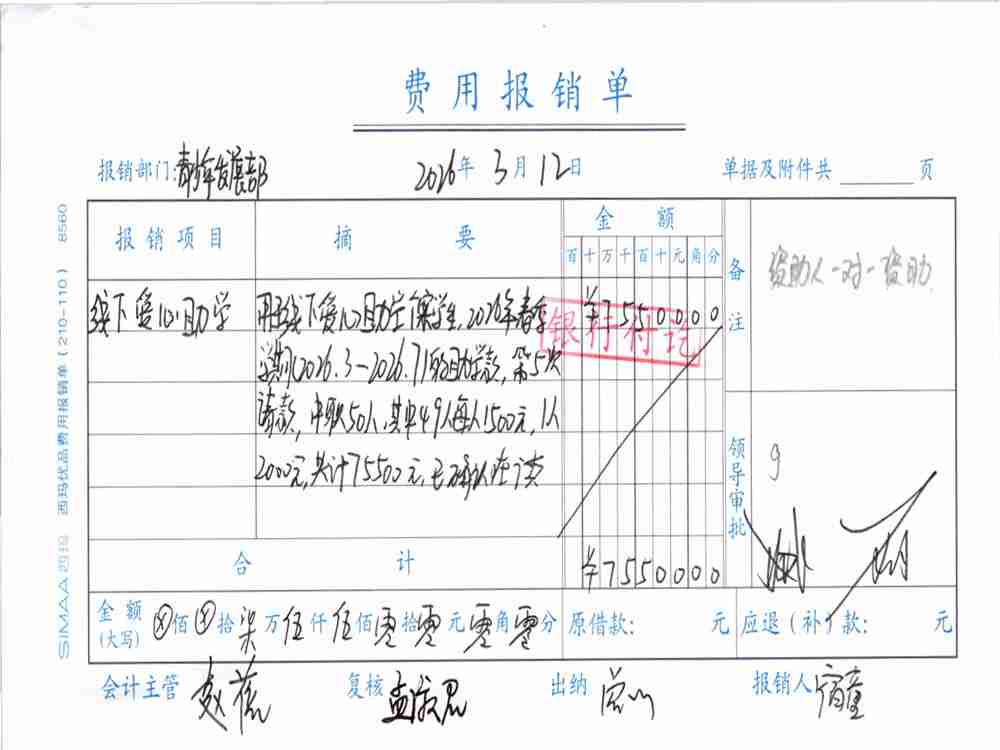 费用报销单
报销部门:青少年发展部 2026年 3月 12日 单据及附件共 页
报销项目 摘要 金额 备注
百十万千百十元角分
资助人一对一资助
线下爱心助学 用于线下爱心助学 学生,2026年春季 ¥7550000
银行付讫
学期(2026.3-2026.7)的助学款,第5次
请款,中职50人,其中49人每人1500元,1人
2000元,共计75500元,已确认在读
领导审批
合计 ¥7550000
金额(大写) ⊗佰⊗拾柒万伍仟伍佰零拾零元零角零分 原借款: 元 应退(补)款: 元
会计主管 赵 复核 孟 出纳 报销人
SIMAA 西玛 西玛优品费用报销单(210-110) 8560